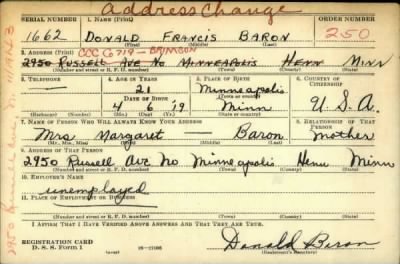 address Change
SERIAL NUMBER 1. NAME (Print) ORDER NUMBER
1662 DONALD FRANCIS BARON 250
(First) (Middle) (Last)
2. ADDRESS (Print) CCC Co 719 - BRIMSON
2950 RUSSELL AVE NO MINNEAPOLIS HENN MINN
(Number and street or R. F. D. number) (Town) (County) (State)
3. TELEPHONE 4. AGE IN YEARS 5. PLACE OF BIRTH 6. COUNTRY OF CITIZENSHIP
21 Minneapolis
DATE OF BIRTH
4 6 '19 Minn U. S. A.
(Mo.) (Day) (Yr.) (State or country)
7. NAME OF PERSON WHO WILL ALWAYS KNOW YOUR ADDRESS 8. RELATIONSHIP OF THAT PERSON
Mrs Margaret — Baron mother
(Mr., Mrs., Miss) (First) (Middle) (Last)
9. ADDRESS OF THAT PERSON
2950 Russell Ave No Minneapolis Henn Minn
(Number and street or R. F. D. number) (Town) (County) (State)
10. EMPLOYER'S NAME
unemployed
11. PLACE OF EMPLOYMENT OR BUSINESS
(Number and street or R. F. D. number) (Town) (County) (State)
I AFFIRM THAT I HAVE VERIFIED ABOVE ANSWERS AND THAT THEY ARE TRUE.
REGISTRATION CARD
D. S. S. FORM 1 Donald Baron
(Registrant's Signature)